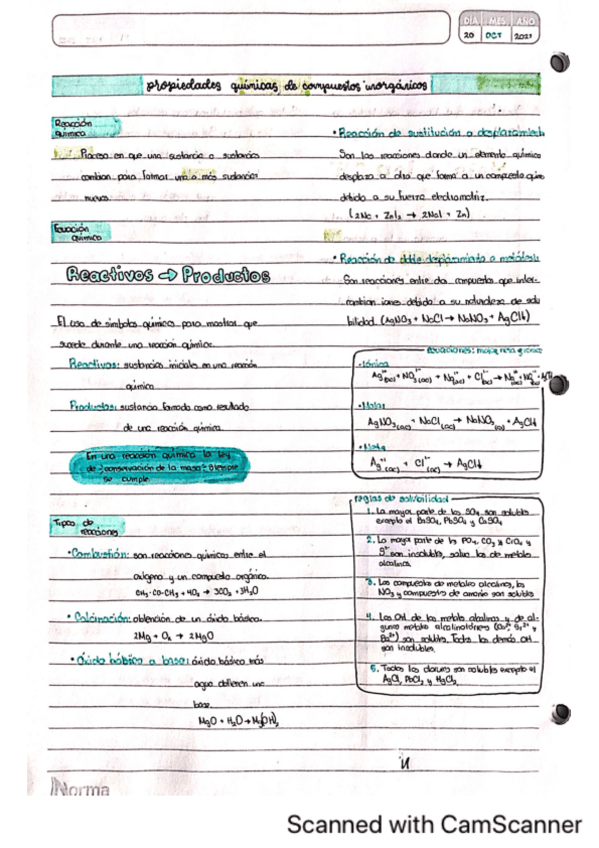 DÍA MES AÑO
20 OCT 2021
propiedades químicas de compuestos inorgánicos
Reacción
química
Proceso en que una sustancia o sustancias
cambian para formar una o más sustancias
nuevas.
Ecuación
química
Reactivos → Productos
El uso de símbolos químicos para mostrar que
sucede durante una reacción química.
Reactivos: sustancias iniciales en una reacción
química
Productos: sustancia formada como resultado
de una reacción química
En una reacción química la ley
de "conservación de la masa" siempre
se cumple
Tipos de
reacciones
• Combustión: son reacciones químicas entre el
oxígeno y un compuesto orgánico.
CH₃-CO-CH₃ + 4O₂ → 3CO₂ + 3H₂O
• Calcinación: obtención de un óxido básico.
2Mg + O₂ → 2MgO
• Óxido básico a base: óxido básico más
agua obtienen una
base.
MgO + H₂O → Mg(OH)₂
• Reacción de sustitución o desplazamient
Son las reacciones donde un elemento químico
desplaza a otro que forma a un compuesto quím
debido a su fuerza electromotriz.
(2Na + ZnI₂ → 2NaI + Zn)
• Reacción de doble desplazamiento o metátesis
Son reacciones entre dos compuestos que inter-
cambian iones debido a su naturaleza de solu
bilidad. (AgNO₃ + NaCl → NaNO₃ + AgCl↓)
ecuaciones:
• Iónica
• Molar
AgNO₃(ac) + NaCl(ac) → NaNO₃(ac) + AgCl↓
• Neta
Ag¹⁺(ac) + Cl¹⁻(ac) → AgCl↓
reglas de solubilidad
1. La mayor parte de los SO₄ son solubles
excepto el BaSO₄, PbSO₄ y CaSO₄
2. La mayor parte de ls PO₄, CO₃ y CrO₄ y
S²⁻ son insolubles, salvo los de metales
alcalinos.
3. Los compuestos de metales alcalinos, los
NO₃ y compuestos de amonio son solubles
4. Los OH de los metales alcalinos y de al-
gunos metales alcalinotérreos (Ca²⁺, Sr²⁺ y
Ba²⁺) son solubles. Todos los demás OH
son insolubles.
5. Todos los cloruros son solubles excepto el
AgCl, PbCl₂ y HgCl₂
Norma
Scanned with CamScanner